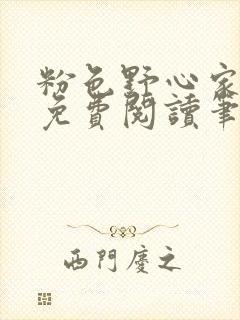 粉色野心家
免費閱讀筆
西門慶之